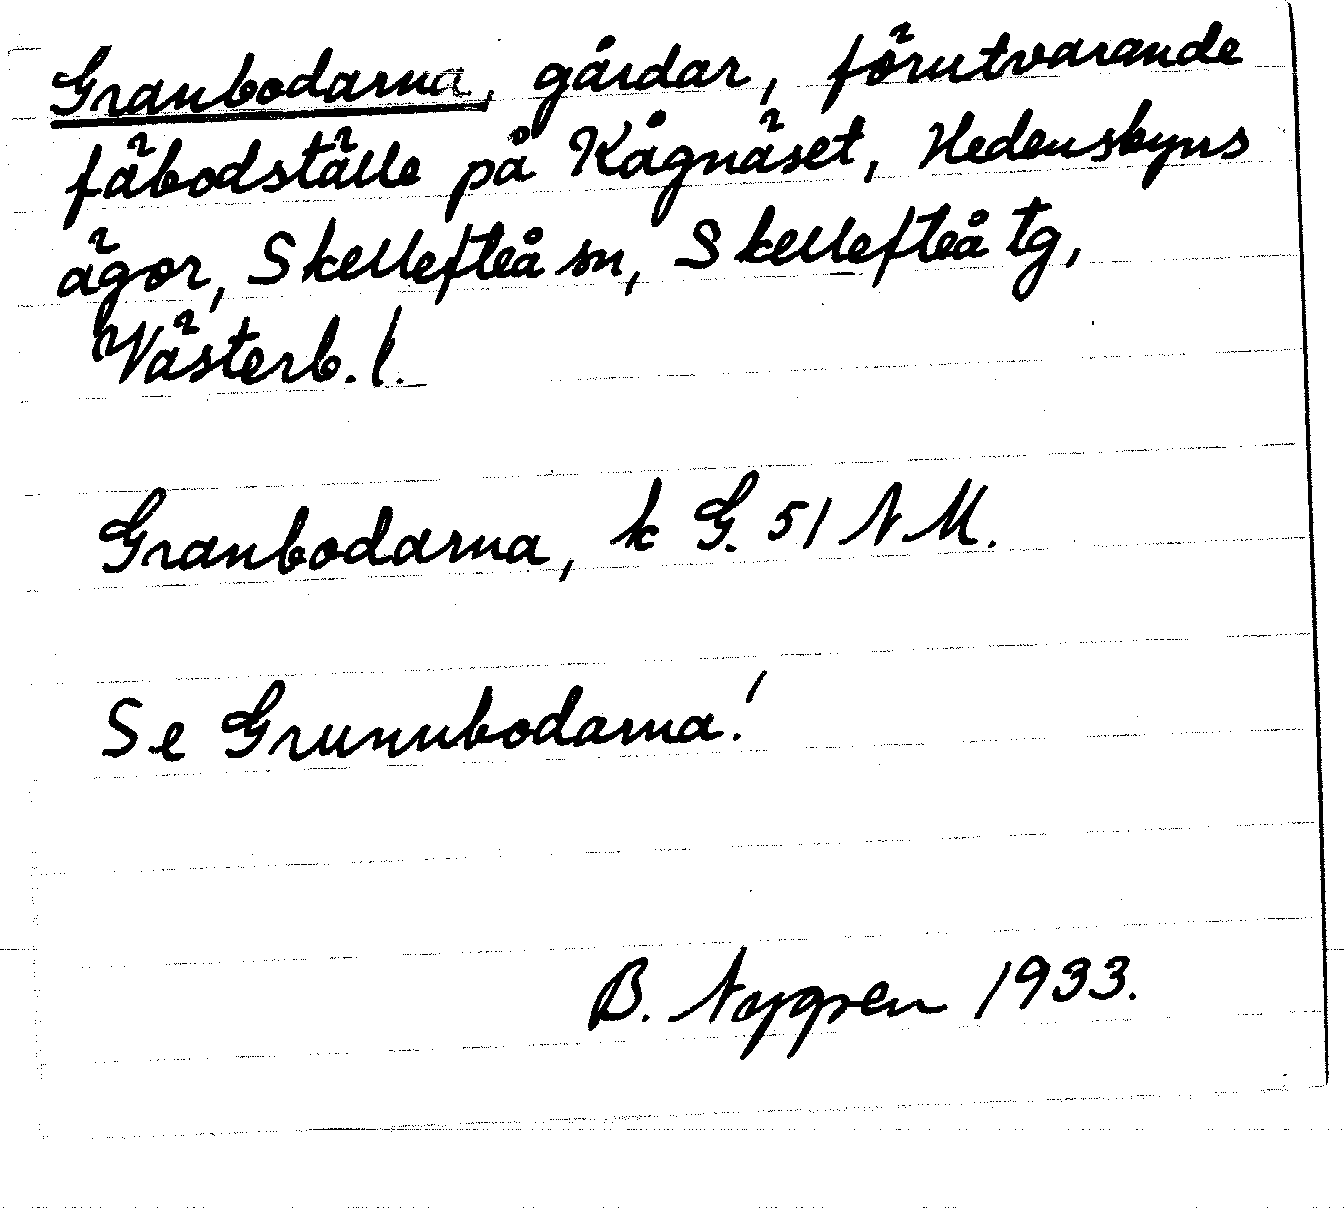 Granbodarna, gårdar, förutvarande
fäbodställe på Kågnäset, Hedensbyns
ägor, Skellefteå sn, Skellefteå tg,
Västerb. l.
Granbodarna, k G. 51 N M.
Se Grunnbodarna!
B. 1933.